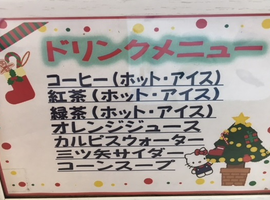 ドリンクメニュー
コーヒー(ホット・アイス)
紅茶(ホット・アイス)
緑茶(ホット・アイス)
オレンジジュース
カルピスウォーター
三ツ矢サイダー
コーンスープ